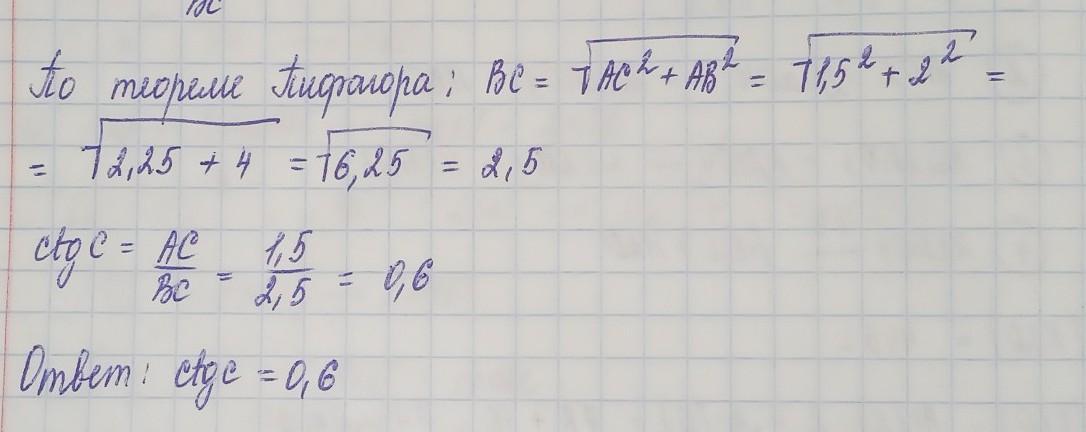 BC
По теореме Пифагора: BC = √AC² + AB² = √1,5² + 2² =
= √2,25 + 4 = √6,25 = 2,5
ctg C = AC/BC = 1,5/2,5 = 0,6
Ответ: ctg c = 0,6